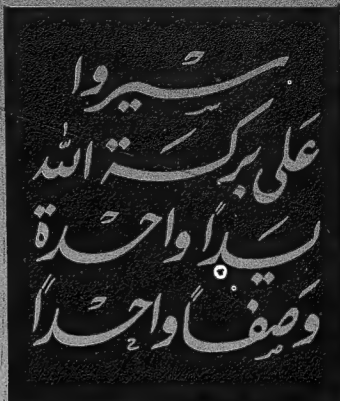 سيروا
عَلى بركة الله
يدًا واحدة
وَصفًا واحدًا